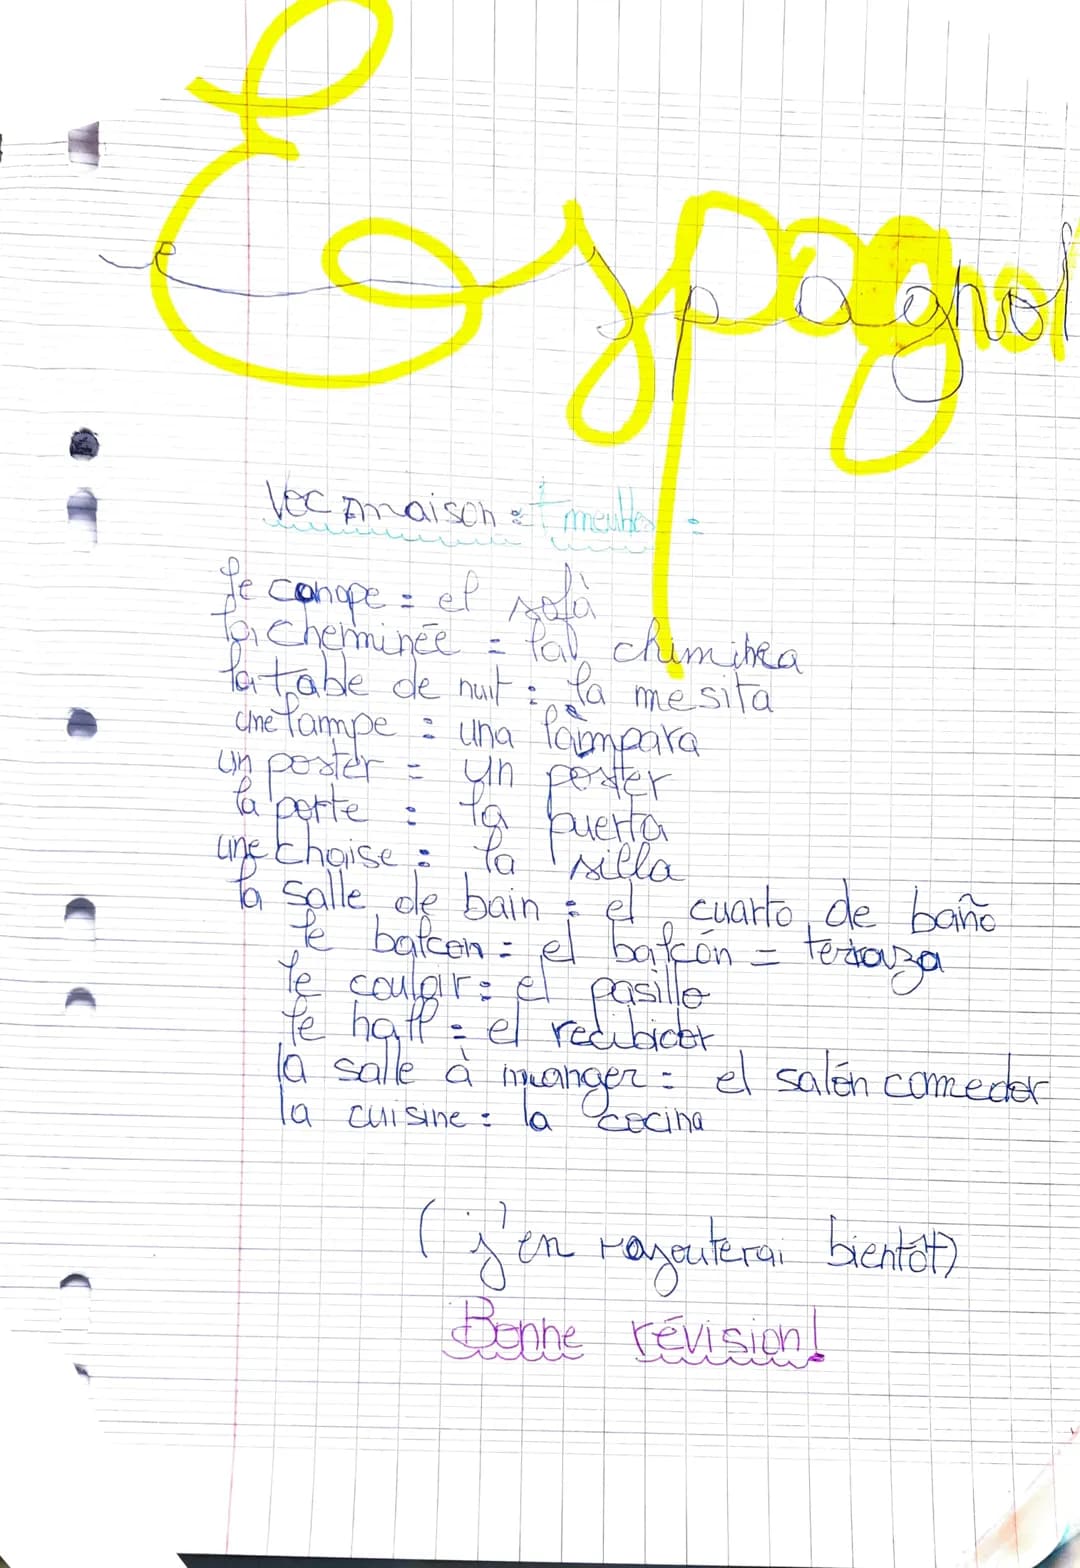 Espagnol
Voc maison + meubles :
le canape = el sofà
la cheminée = la chiminea
la table de nuit : la mesita
une lampe : una lámpara
un poster = un poster
la porte : la puerta
une chaise : la silla
la salle de bain : el cuarto de baño
le balcon = el balcón = terraza
le couloir : el pasillo
le hall = el recibidor
la salle à manger = el salón comedor
la cuisine : la cocina
( j'en rajouterai bientôt)
Bonne révision!